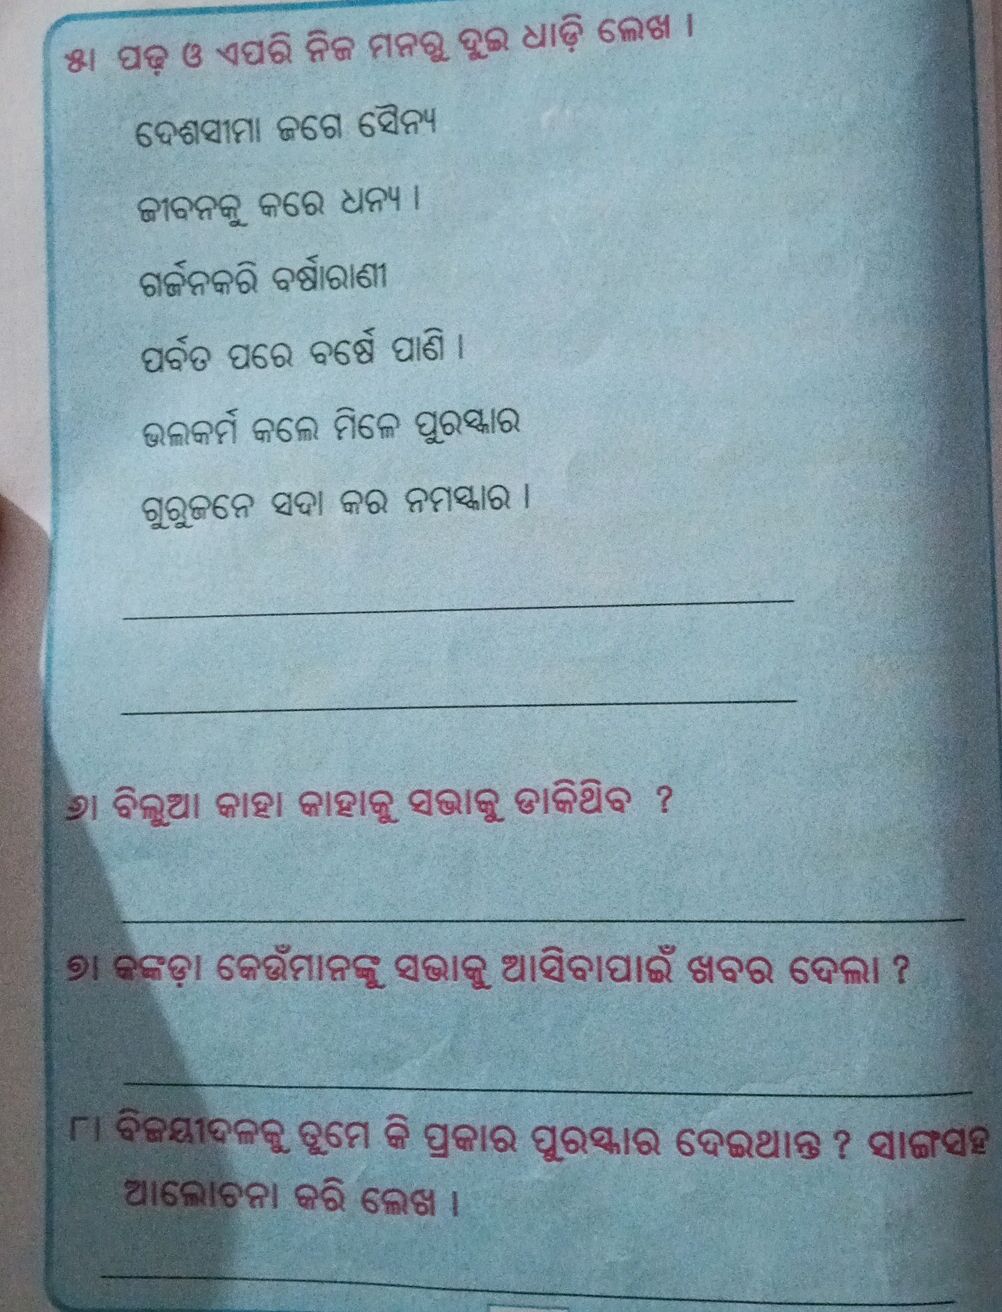 ୫। ପଢ଼ ଓ ଏପରି ନିଜ ମନରୁ ଦୁଇ ଧାଡ଼ି ଲେଖ ।
ଦେଶସୀମା ଜଗେ ସୈନ୍ୟ
ଜୀବନକୁ କରେ ଧନ୍ୟ ।
ଗର୍ଜନକରି ବର୍ଷାରାଣୀ
ପର୍ବତ ପରେ ବର୍ଷେ ପାଣି ।
ଭଲକର୍ମ କଲେ ମିଳେ ପୁରସ୍କାର
ଗୁରୁଜନେ ସଦା କର ନମସ୍କାର ।
୬। ବିଲୁଆ କାହା କାହାକୁ ସଭାକୁ ଡାକିଥିବ ?
୭। କଙ୍କଡ଼ା କେଉଁମାନଙ୍କୁ ସଭାକୁ ଆସିବାପାଇଁ ଖବର ଦେଲା ?
୮। ବିଜୟୀଦଳକୁ ତୁମେ କି ପ୍ରକାର ପୁରସ୍କାର ଦେଇଥାନ୍ତ ? ସାଙ୍ଗସହ
ଆଲୋଚନା କରି ଲେଖ ।